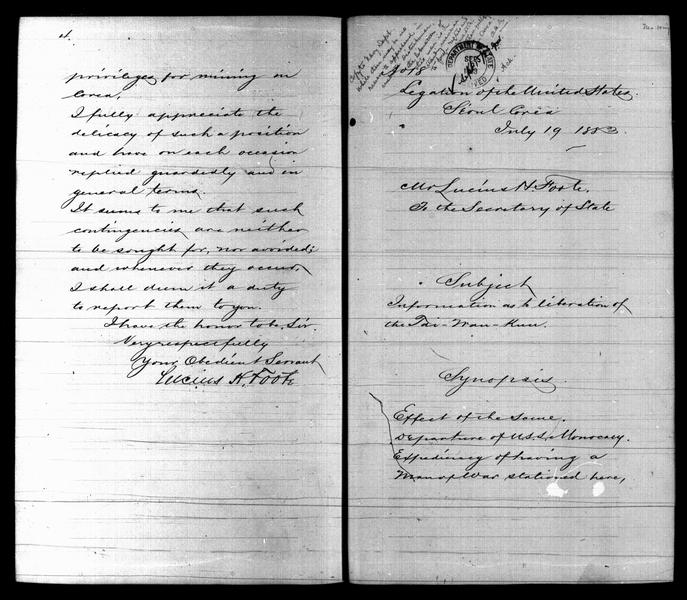 privileges for mining in
Corea.
I fully appreciate the
delicacy of such a position
and have on each occasion
replied guardedly and in
general terms.
It seems to me that such
contingencies are neither
to be sought for, nor avoided;
and whenever they occur,
I shall deem it a duty
to report them to you.
I have the honor to be Sir.
Very respectfully
Your Obedient Servant
Lucius H. Foote
No 18
Legation of the United States.
Séoul Corea
July 19 1883.
Mr Lucius H Foote.
To the Secretary of State
Subject
Information as to liberation of
the Tai-Wan-Kun.
Synopsis.
Effect of the same.
Departure of U.S.S. Monocacy.
Expediency of having a
Man of War stationed here,